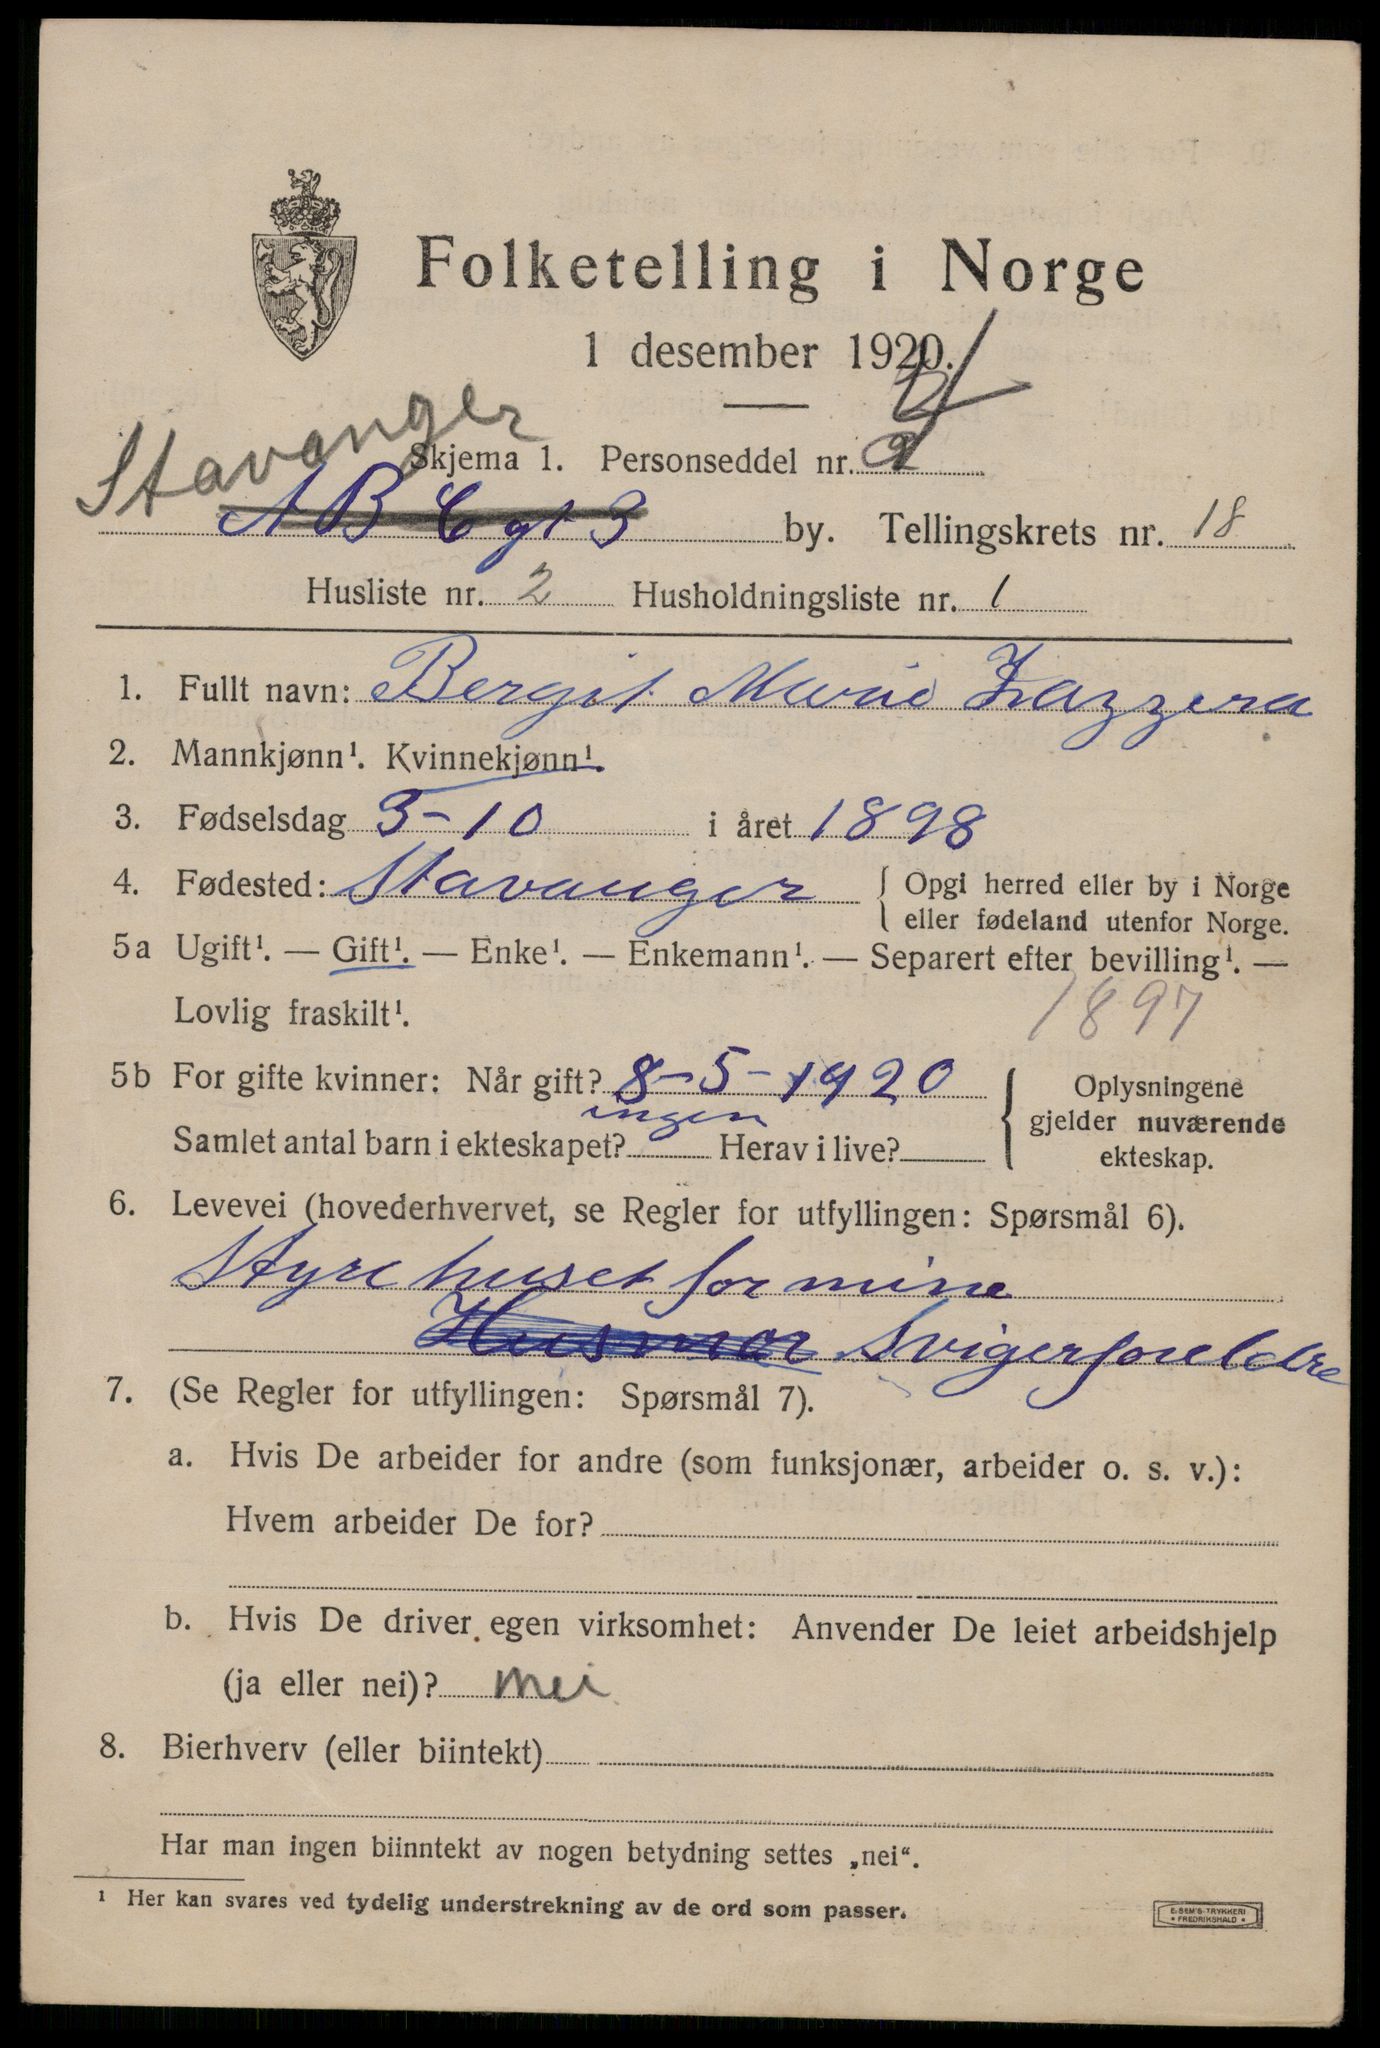 Folketelling i Norge
1 desember 1920.
Stavanger
Skjema 1. Personseddel nr. 2 4
A B C gt 3 by. Tellingskrets nr. 18
Husliste nr. 2 Husholdningsliste nr. 1
1. Fullt navn: Bergit Marie Zazzera
2. Mannkjønn¹. Kvinnekjønn¹.
3. Fødselsdag 3-10 i året 1898
4. Fødested: Stavanger { Opgi herred eller by i Norge
eller fødeland utenfor Norge.
5a Ugift¹. — Gift¹. — Enke¹. — Enkemann¹. — Separert efter bevilling¹. —
Lovlig fraskilt¹. 1897
5b For gifte kvinner: Når gift? 8-5-1920 { Oplysningene
gjelder nuværende
ekteskap.
Samlet antal barn i ekteskapet? ingen Herav i live?
6. Levevei (hovederhvervet, se Regler for utfyllingen: Spørsmål 6).
Styre huset for mine
Husmor Svigerforeldre
7. (Se Regler for utfyllingen: Spørsmål 7).
a. Hvis De arbeider for andre (som funksjonær, arbeider o. s. v.):
Hvem arbeider De for?
b. Hvis De driver egen virksomhet: Anvender De leiet arbeidshjelp
(ja eller nei)? nei
8. Bierhverv (eller biintekt)
Har man ingen biinntekt av nogen betydning settes „nei“.
¹ Her kan svares ved tydelig understrekning av de ord som passer.
E. SEM'S TRYKKERI
• FREDRIKSHALD •